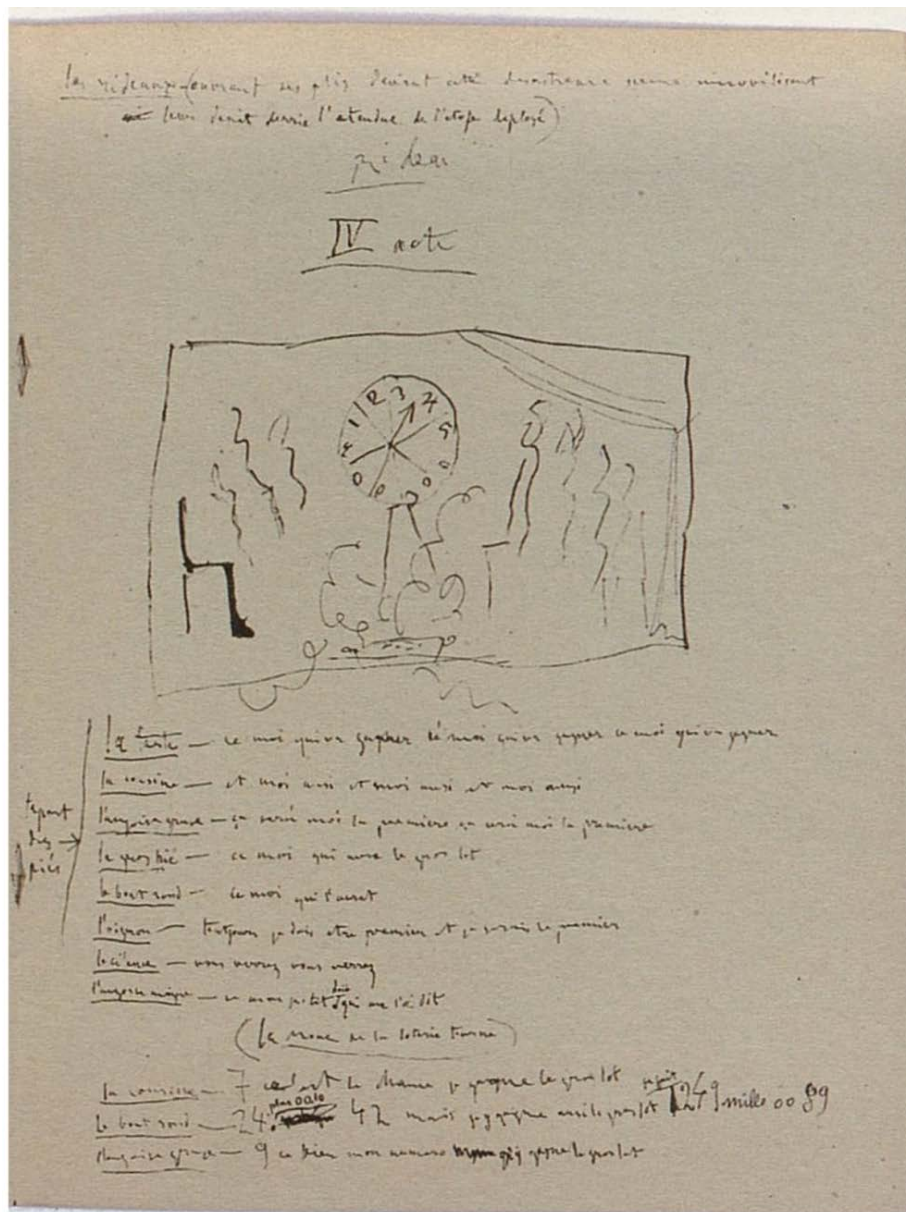 les rideaux (ouvrant ses plis
leur derrie l'etendue de l'etofe deploye)
rideau
IV acte
1 2 3 4 5
la Tarte — ce moi qui va gagner cé moi qui va gagner ce moi qui va gagner
la cousine — et moi ausi et moi ausi et moi ausi
l'angoise grase — ça sera moi la premiere ça sera moi la premiere
le gros pié — ce moi qui aura le gros lot
le bout rond — ce moi qui
l'oignon — toutjours je dois etre premier et je serais le premier
le cilence — vous verrez vous verrez
l'angoise maigre — ce mon petit doit qui me l'a dit
(la roue de la loterie tourne)
la cousine — 7 la chance je gagne le gros lot
le bout rond — 24. plus 00 10 42 mais je gagne ausi le gros lot 249 mille 00 89
l'angoise grase — 9 ce bien mon numero gagne le gros lot